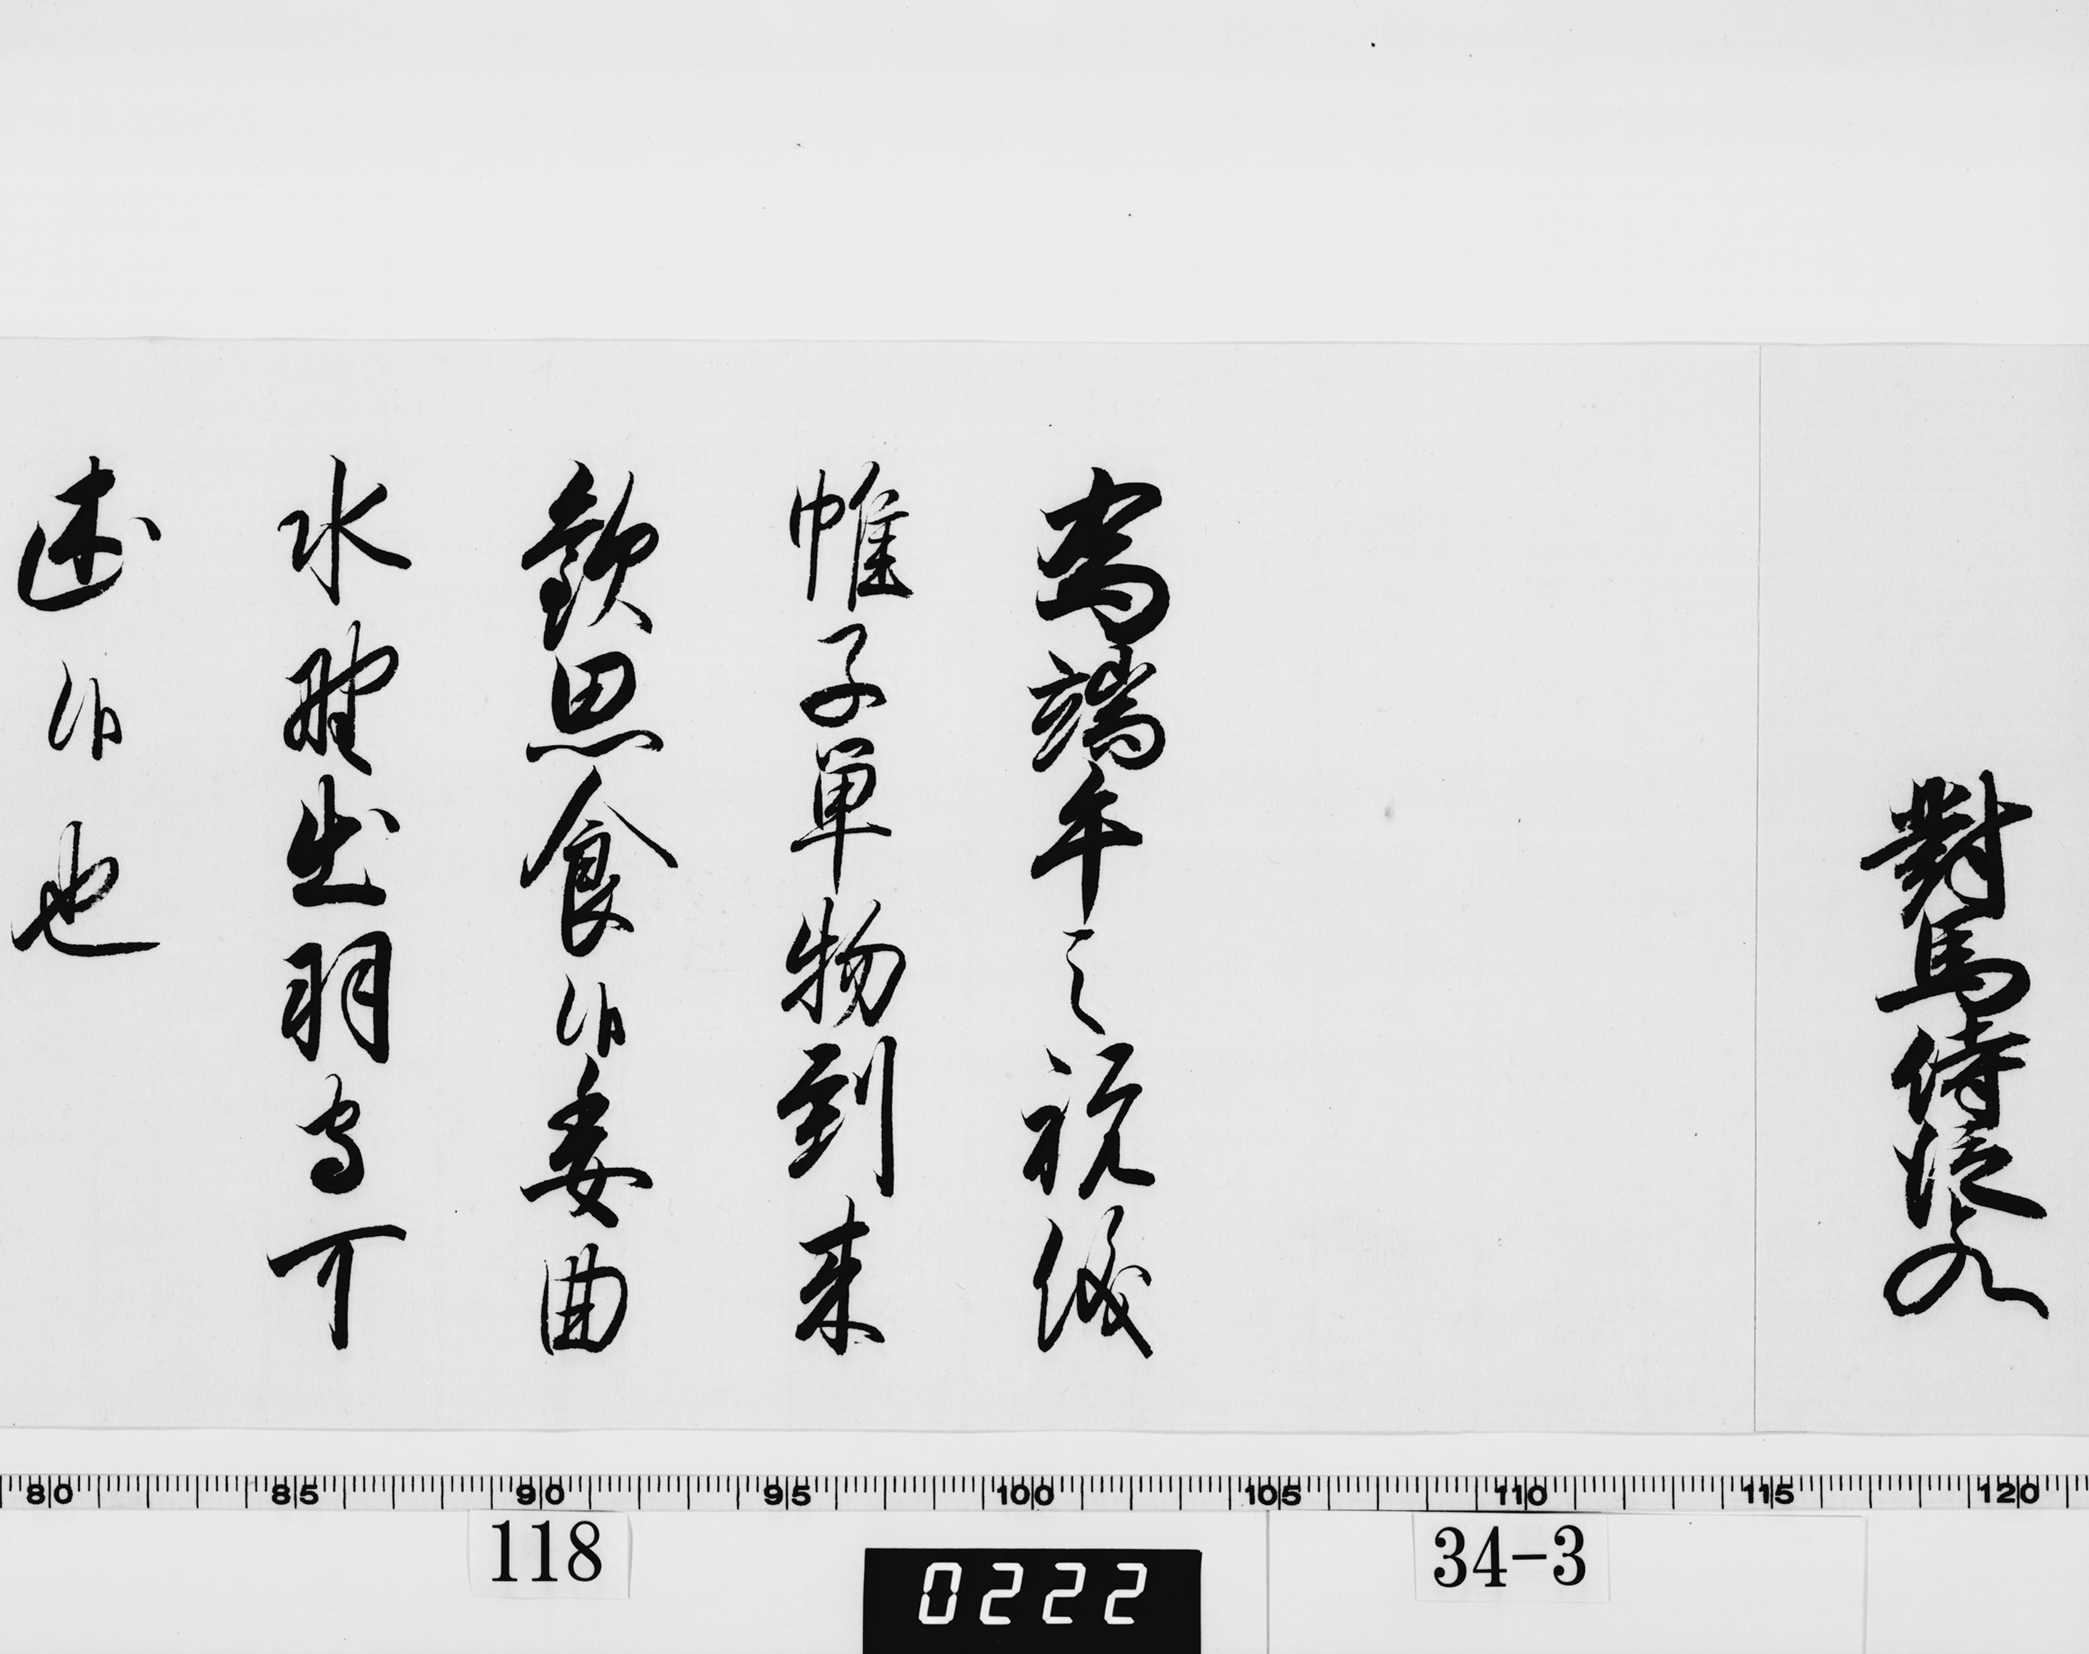 對馬侍従とのへ
為端午之祝儀
帷子単物到来
歓思食候委曲
水野出羽守可
述候也
80 85 90 95 100 105 110 115 120
118
0222
34-3